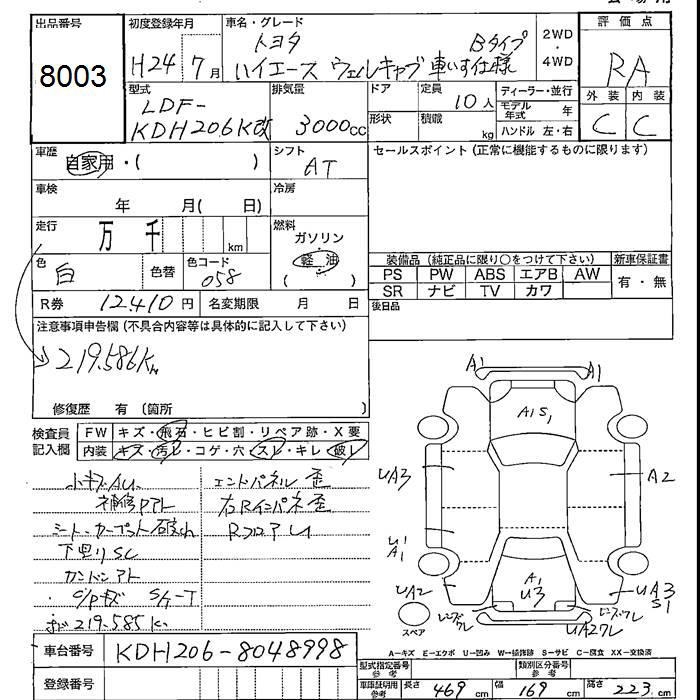 出品番号
8003
初度登録年月
H24年 7月
車名・グレード
トヨタ Bタイプ
ハイエース ウェルキャブ 車いす仕様
2WD
・
4WD
評価点
RA
外装 内装
C C
型式
LDF-
KDH206K改
排気量
3000cc
ドア
定員
10人
形状
積載
kg
ディーラー・並行
モデル年式 年
ハンドル 左・右
車歴
自家用・( )
シフト
AT
セールスポイント (正常に機能するものに限ります)
車検
年 月( 日)
冷房
走行
万 千 km
燃料
ガソリン
軽油
( )
色
白
色替
色コード
058
装備品 (純正品に限り○をつけて下さい)
新車保証書
PS PW ABS エアB AW
有・無
SR ナビ TV カワ
R券 12410円
名変期限 月 日
後日品
注意事項申告欄 (不具合内容等は具体的に記入して下さい)
219.586K
修復歴 有 (箇所 )
検査員
記入欄
FW キズ・飛石・ヒビ割・リペア跡・X要
内装 キズ・汚レ・コゲ・穴・スレ・キレ・破レ
小キズAU
エンドパネル 歪
補修アト
右Rインパネ歪
シート、カーペット破れ
RフロアU
下回りSC
219.585K
A1
A1
A1 S1
UA3
A2
U1
A1
UA2
A1
U3
UA3
S1
UA2ワレ
スペア
A-キズ E-エクボ U-凹み W-補修跡 S-サビ C-腐食 XX-交換済
車台番号 KDH206-8048998
登録番号
型式指定番号
参考
類別区分番号
参考
車庫証明用
参考
長さ 469cm 幅 169cm 高さ 223cm